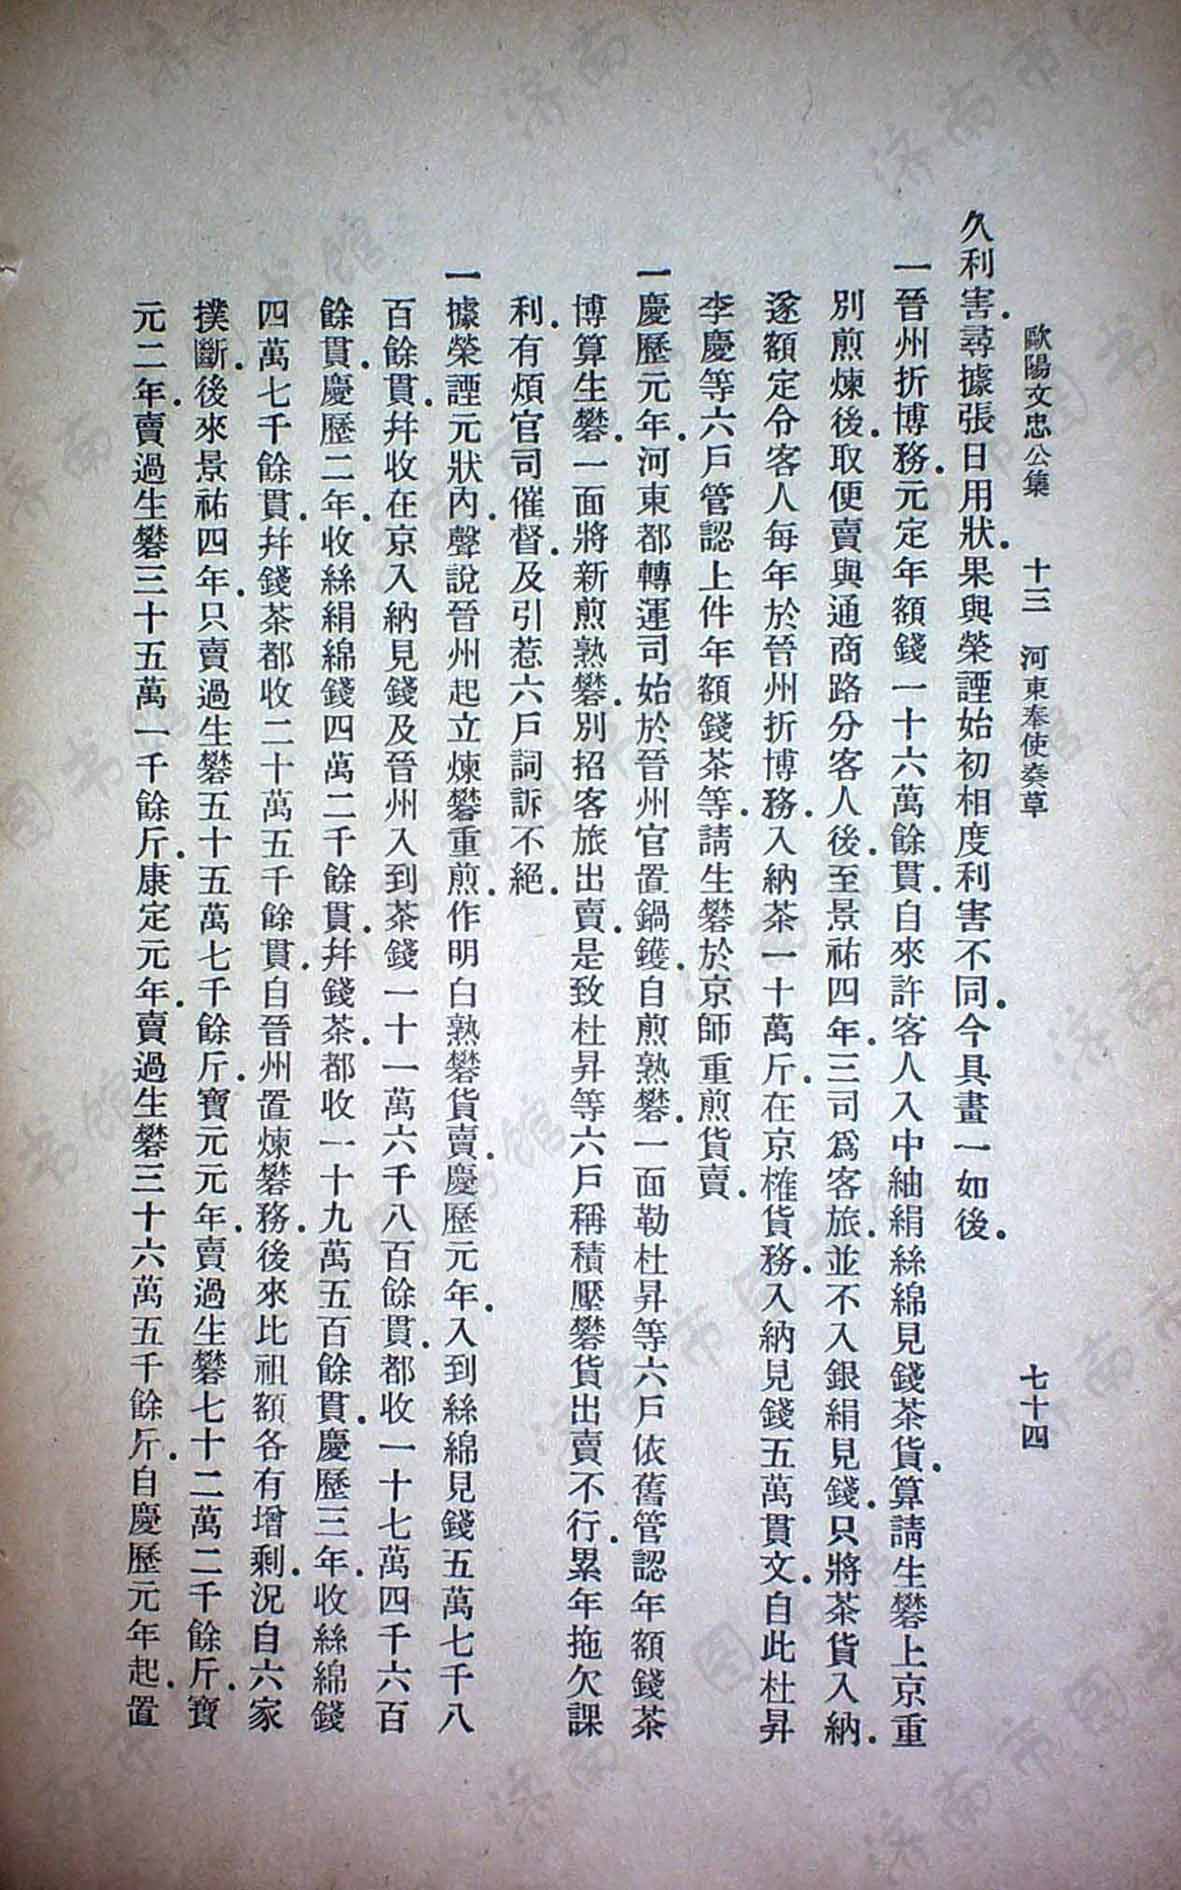 歐陽文忠公集　十三　河東奉使奏草　七十四
久利害．尋據張日用狀．果與榮諲始初相度利害不同．今具畫一如後．
一晉州折博務．元定年額錢一十六萬餘貫．自來許客人入中紬絹絲綿見錢茶貨．算請生礬上京重
別煎煉後．取便賣與通商路分客人．後至景祐四年．三司爲客旅．並不入銀絹見錢．只將茶貨入納．
遂額定分客人每年於晉州折博務．入納茶一十萬斤．在京榷貨務．入納見錢五萬貫文．自此杜昇
李慶等六戶管認上件年額錢茶等．請生礬於京師重煎貨賣．
一慶歷元年．河東都轉運司始於晉州官置鍋鑊．自煎熟礬．一面勒杜昇等六戶依舊管認年額錢茶
博算生礬．一面將新煎熟礬．別招客旅出賣．是致杜昇等六戶稱積壓礬貨出賣不行．累年拖欠課
利．有煩官司催督．及引惹六戶詞訴不絕．
一據榮諲元狀內．聲說晉州起立煉礬重煎．作明白熟礬貨賣．慶歷元年．入到絲綿見錢五萬七千八
百餘貫．幷收在京入納見錢及晉州入到茶錢一十一萬六千八百餘貫．都收一十七萬四千六百
餘貫．慶歷二年．收絲絹綿錢四萬二千餘貫．幷錢茶．都收一十九萬五百餘貫．慶歷三年．收絲綿錢
四萬七千餘貫．幷錢茶都收二十萬五千餘貫．自晉州置煉礬務．後來比祖額各有增剩．況自六家
撲斷．後來景祐四年．只賣過生礬五十五萬七千餘斤．寶元元年．賣過生礬七十二萬二千餘斤．寶
元二年．賣過生礬三十五萬一千餘斤．康定元年．賣過生礬三十六萬五千餘斤．自慶歷元年起．置